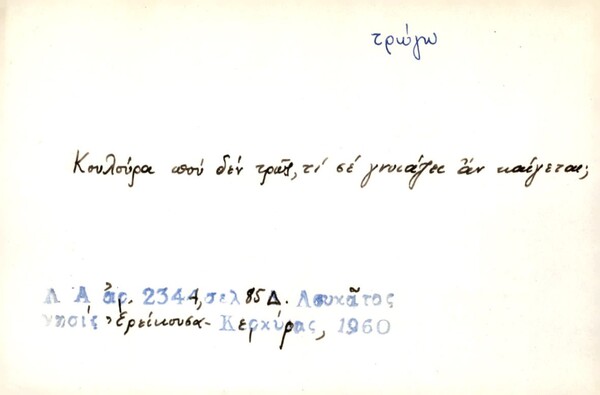 τρώγω
Κουλούρα πού δέν τρῶς, τί σέ γνοιάζει ἄν καίγεται;
Λ Α ἀρ. 2344, σελ 85 Δ. Λουκᾶτος
νησίς Ἐρείκουσα - Κερκύρας, 1960